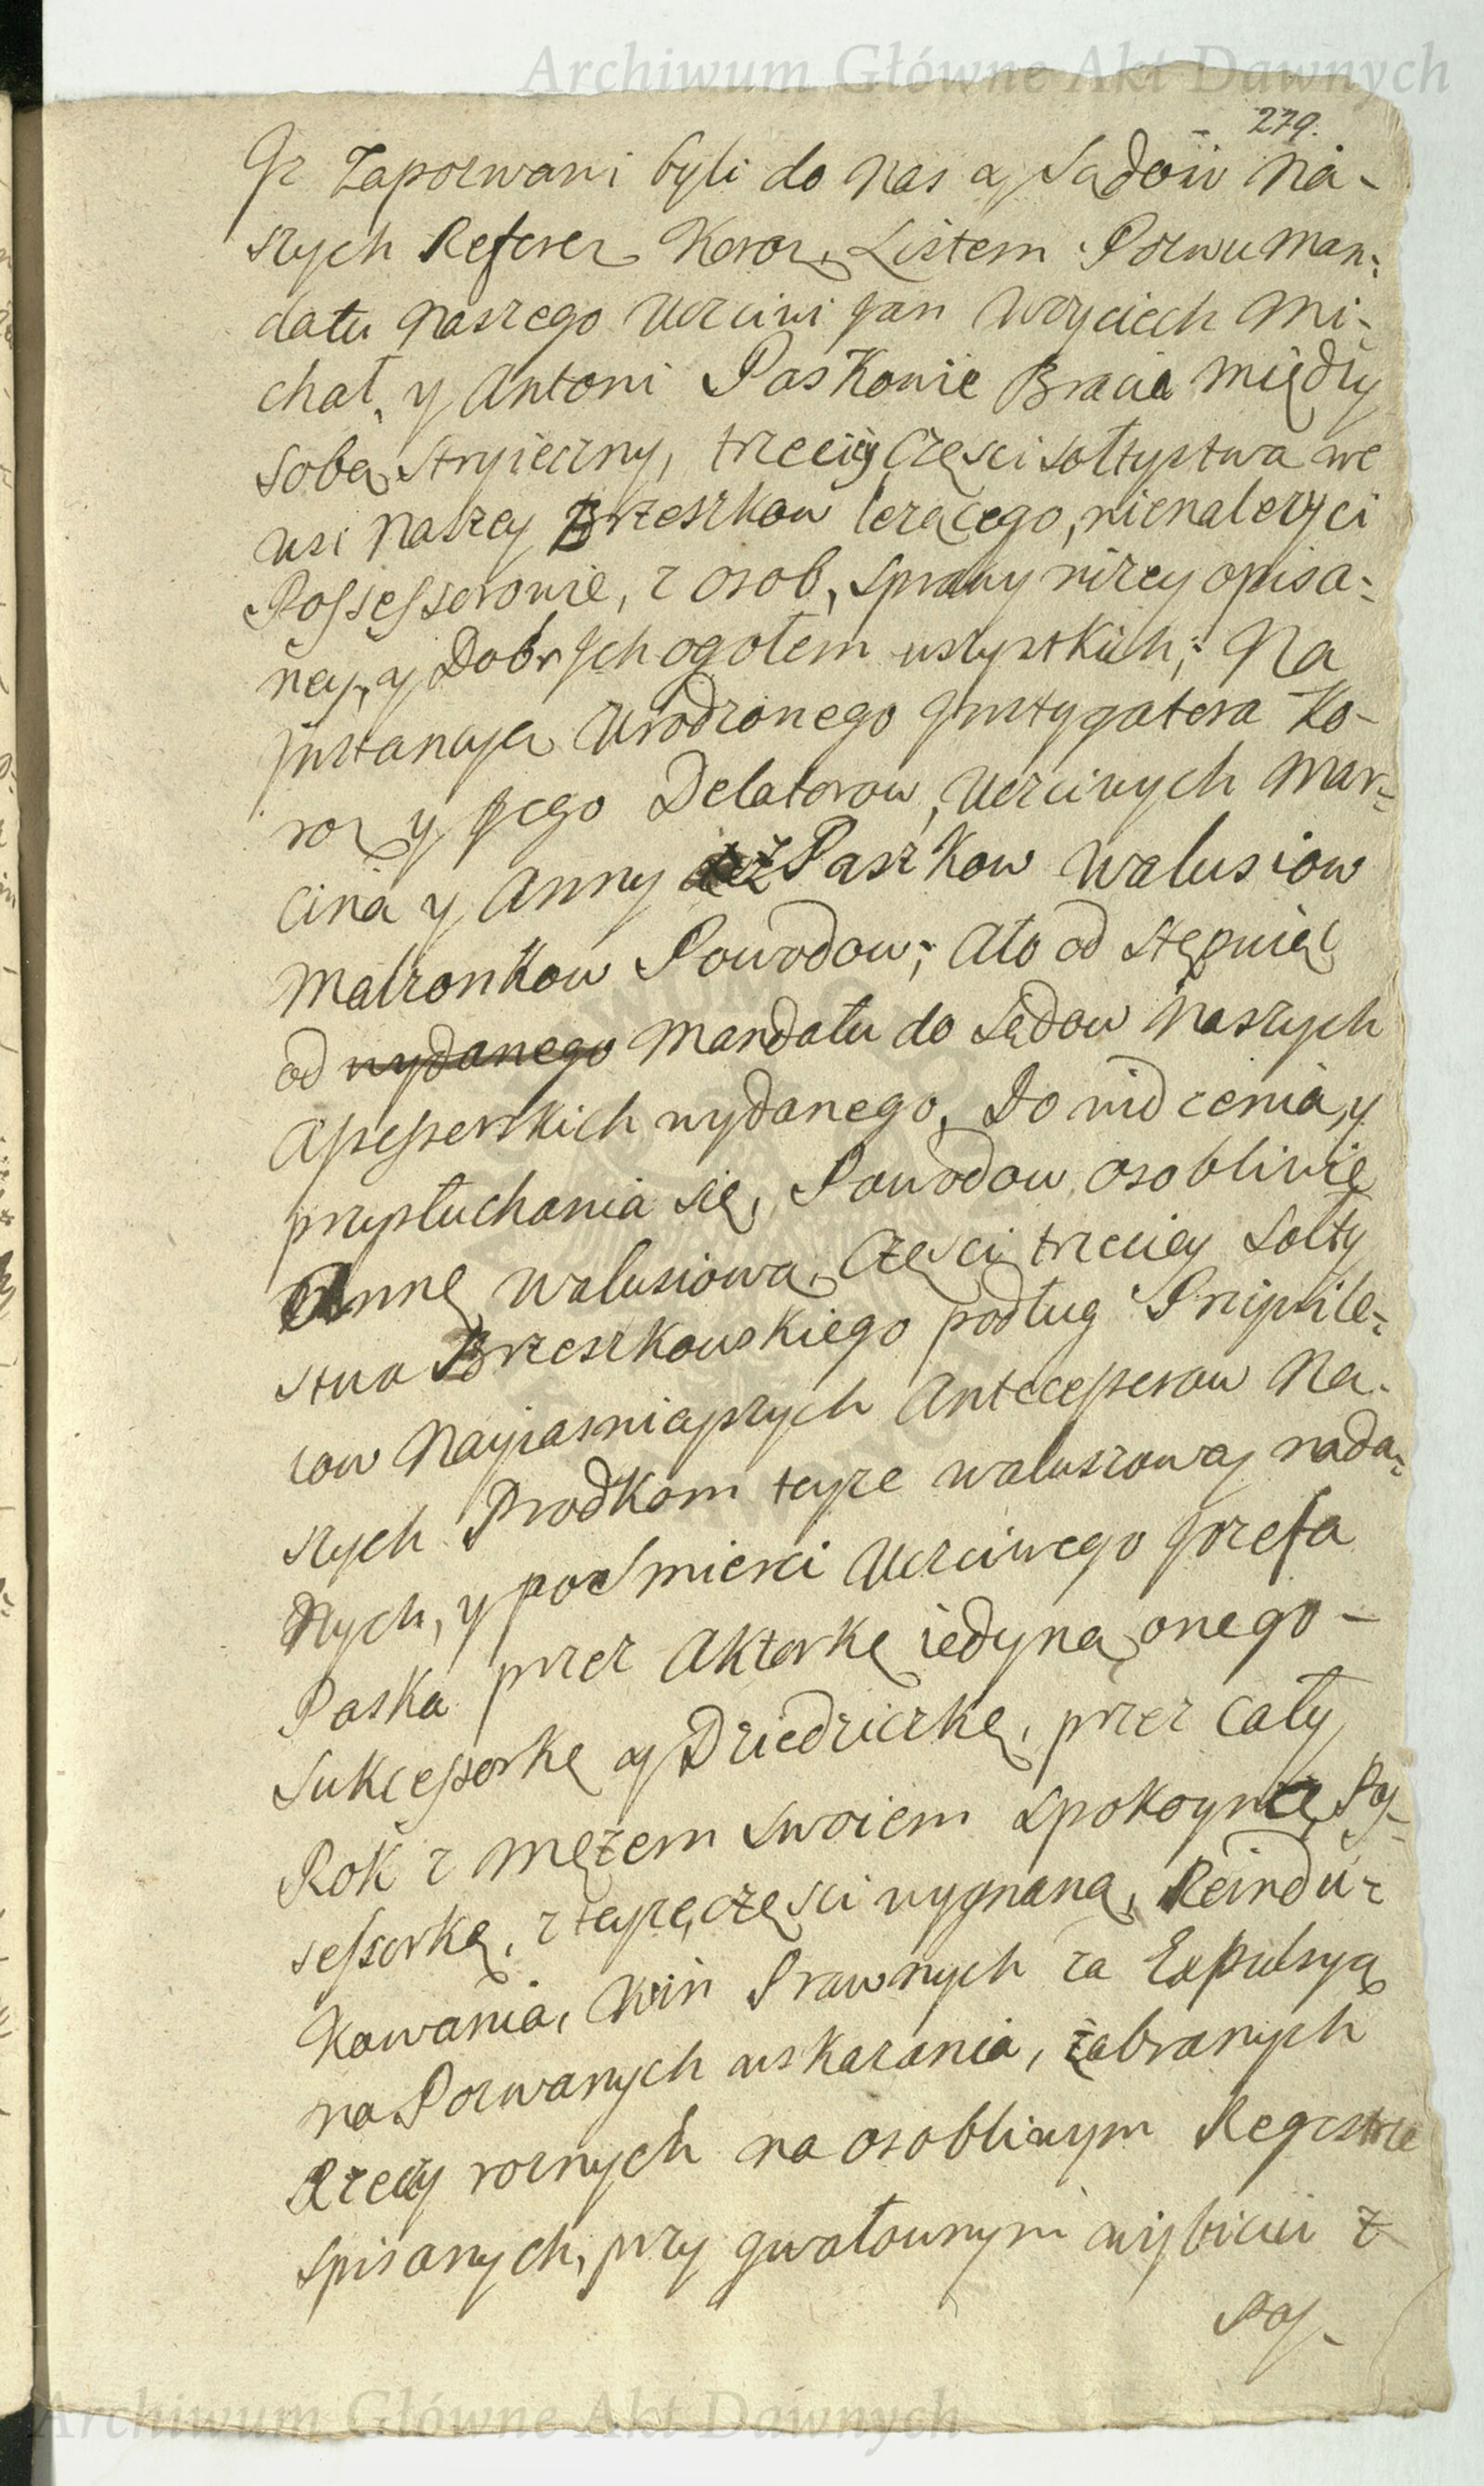 Archiwum Główne Akt Dawnych
279.
Iż Zapozwani byli do nas a Sądów na-
szych Referen Koron. Listem Pozwu man:
datu naszego Uczciwi Jan Woyciech Mi-
chał, y Antoni Paskowie Bracia między
sobą stryieczny, trzeciey części sołtystwa we
wsi naszey Brzeszkow leżącego, nienależyci
Possessorowie, z osob, sprawy niżey opisa:
ney, y Dobr Jch ogołem wszystkich; Na
Jnstancyą Urodzonego Jnstygatora Ko-
ron y Jego Delatorow, Uczciwych Mar-
cina y Anny z Paszkow Walusiow
Małżonkow Powodow; Ato od stępuiąc
od wydanego Mandatu do Sądow naszych
Assessorskich wydanego, Do widzenia y
przysłuchania się, Powodow osobliwie
Annę Walusiową, Części trzeciey Sołty
stwa Brzeszkowskiego podług Przywile-
iow Nayiasnieyszych Antecessorow Na-
szych Przodkom teyże Walusiowey nada-
Nych, y po Smierci Uczciwego Jozefa
Paska przez Aktorkę iedyną onego -
Sukcessorkę y Dziedziczkę, przez cały
Rok z mężem swoiem spokoyną Pos-
sessorkę, z teyże części wygnaną, Reindu-
kowania, Win Prawnych za Expulsyą
na Pozwanych wskazania, zabranych
Rzeczy rożnych na osobliwym Regestrze
spisanych, przy gwałownym wybiciu z
Pos-
Archiwum Główne Akt Dawnych